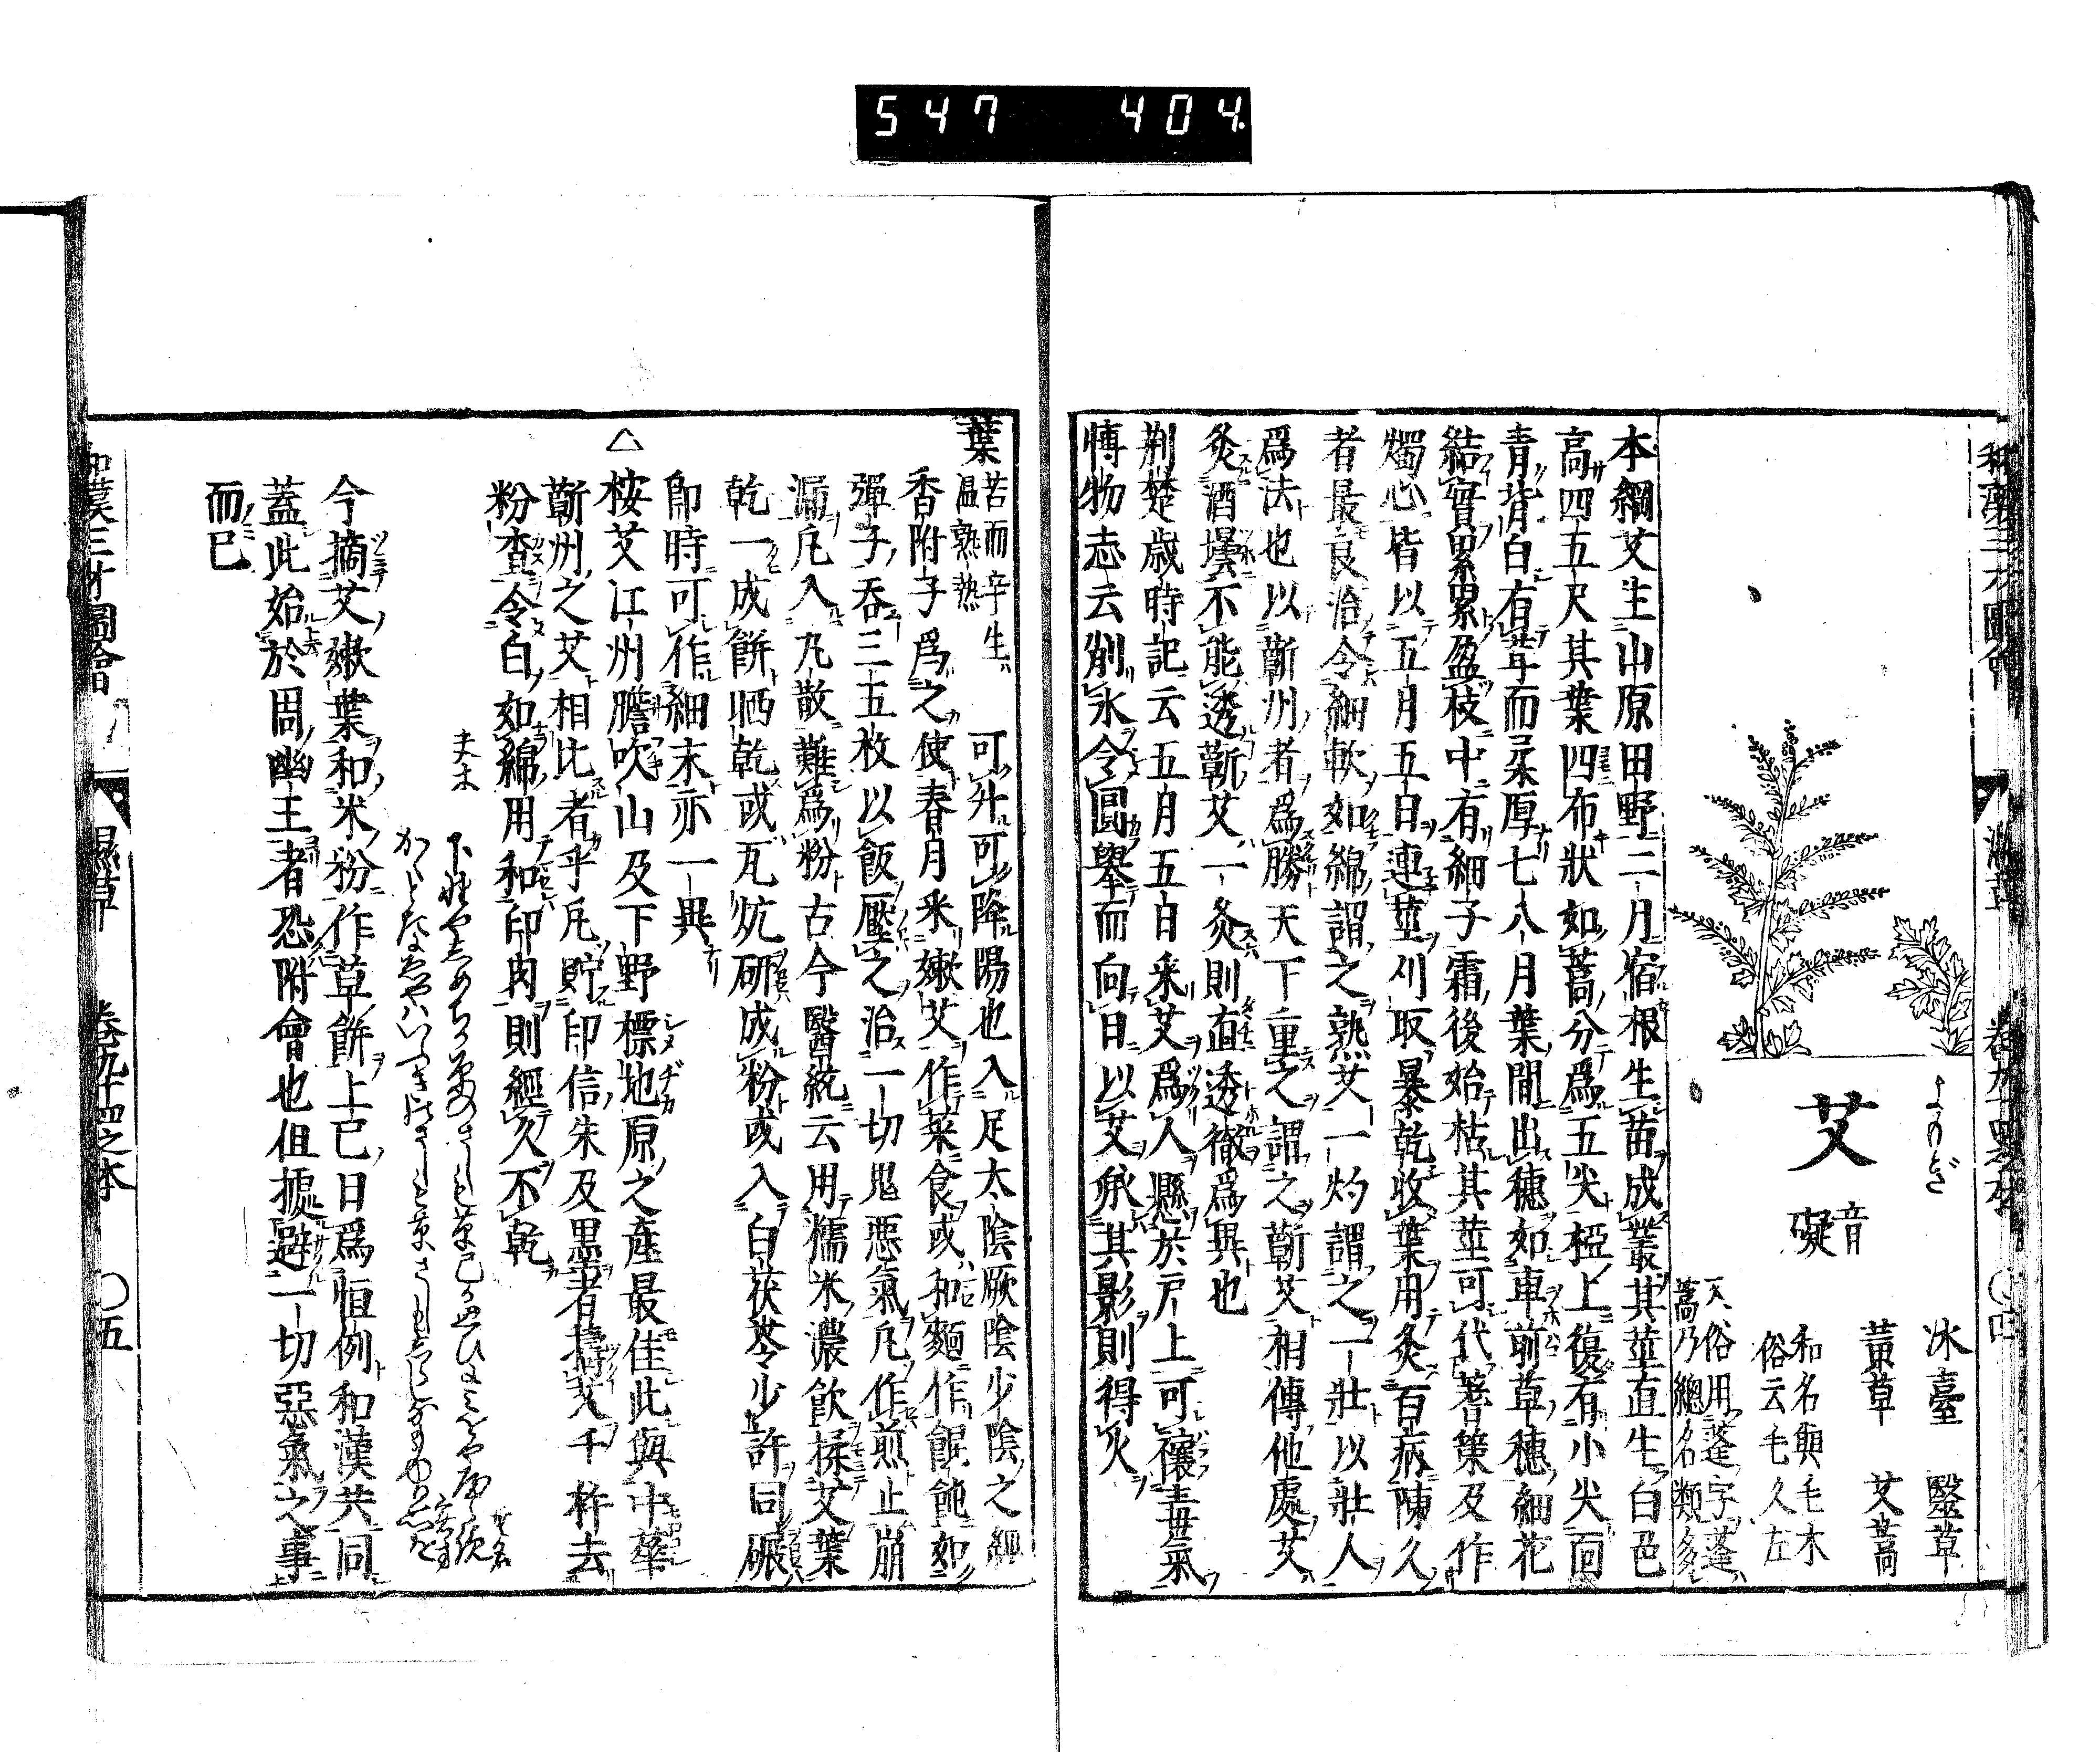 547 404
よもぎ
艾
音礙
冰臺 醫草
黃草 艾蒿
和名與毛木
俗云毛久左
又俗用蓬字蓬
蒿乃總名類多
本綱艾生山原田野二月宿根生苗成叢其莖直生白色
高四五尺其葉四布狀如蒿分爲五尖椏上復有小尖面
青背白有茸而柔厚七八月葉間出穗如車前草穗細花
結實累累盈枝中有細子霜後始枯其莖可代蓍策及作
燭心皆以五月五日連莖刈取暴乾收葉用灸百病陳久
者最良治令細軟如綿謂之熟艾一灼謂之一壯以壯人
爲法也以蘄州者爲勝天下重之謂之蘄艾相傳他處艾
灸酒壜不能透蘄艾一灸則直透徹爲異也
荆楚歲時記云五月五日采艾爲人懸於戸上可禳毒氣
博物志云削氷令圓舉而向日以艾承其影則得火
葉 苦而辛生温熟熱 可升可降陽也入足太陰厥陰少陰之細
香附子爲之使春月采嫩艾作菜食或和麵作餛飩如
彈子吞三五枚以飯壓之治一切鬼惡氣凡作煎止崩
漏凡入丸散難爲粉古今醫統云用糯米濃飮揉艾葉
乾一成餅晒乾或瓦炕研成粉或入白茯苓少許同碾
卽時可作細末亦一異
△桉艾江州膽吹山及下野標地原之產最佳此與中華
蘄州之艾相比者乎凡貯印信朱及墨者擣艾千杵去
粉查令白如綿用和印肉則經久不乾
夫木
今摘艾嫩葉和米粉作草餅上巳日爲恒例和漢共同
蓋此始於周幽王者恐附會也但據避一切惡氣之事
而已
和漢三才圖會 濕草 卷九十四之本 〇五